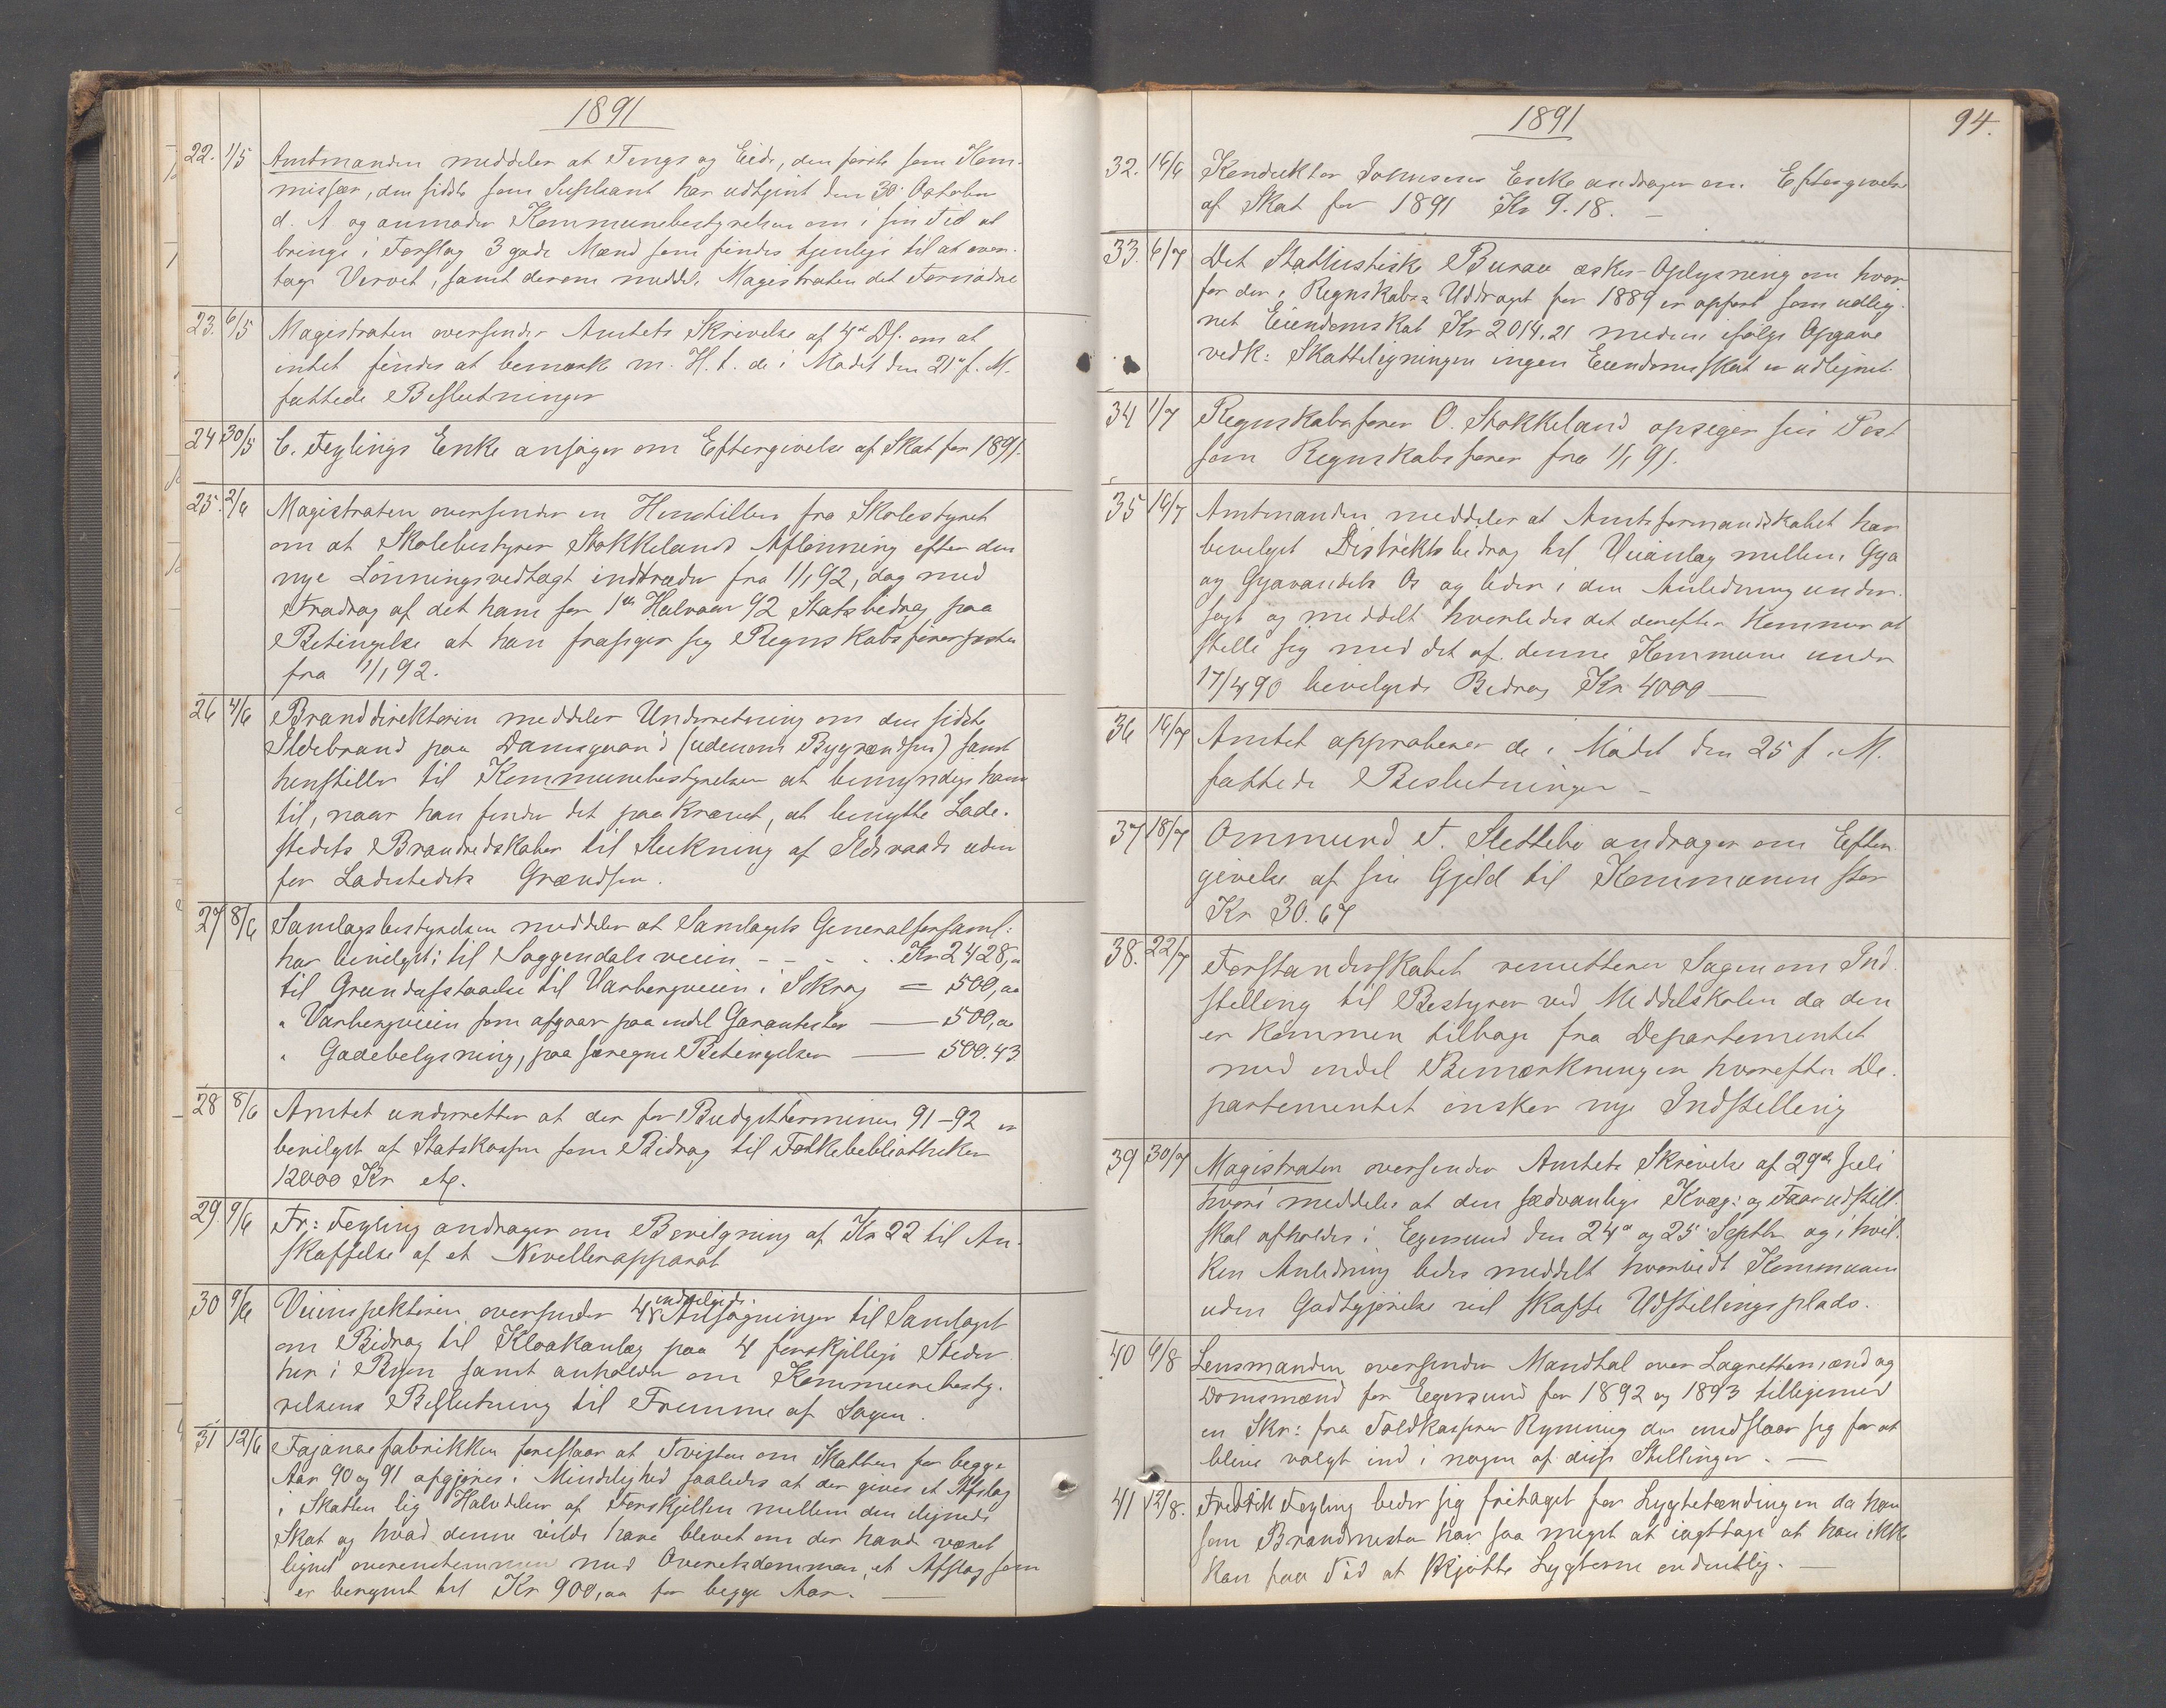 1891
22. 1/5 Amtmanden meddeler at Tengs og Eide, den første som Kom-
missær, den sidste som Supleant har udtjent den 30' October
d. A og anmoder Kommunebestyrelsen om i sin Tid at
bringe i Forslag 3 gode Mænd som findes tjenlige til at over-
tage Vervet, samt derom meddl. Magistraten det Fornødne
23. 6/5 Magistraten oversender Amtets Skrivelse af 4de Ds. om at
intet findes at bemærke m. H. t. de i Mødet den 21' f. M.
fattede Beslutninger
24 30/5 C. Feylings Enke ansøger om Eftergivelse af Skat for 1891.
25. 2/6 Magistraten oversender en Henstillen fra Skolestyret
om at Skolebestyrer Stokkelands Aflønning efter den
nye Lønningsvedtægt indtræder fra 1/1 92, dog med
Fradrag af det ham for 1ste Halvaar 92 Statsbidrag paa
Betingelse at han frasiger sig Regnskabsførerposten
fra 1/1 92.
26 4/6 Branddirektøren meddeler Underretning om den sidste
Ildebrand paa Damsgaard (udenom Bygrændsen) samt
henstiller til Kommunebestyrelsen at bemyndige ham
til, naar han finder det paakrævet, at benytte Lade-
stedets Brandredskaber til Slukning af Ildsvaade uden
for Ladestedets Grændser.
27 8/6 Samlagsbestyrelsen meddeler at Samlagets Generalforsaml:
har bevilget: til Soggendalsveien - - - - Kr 2428,"
til Grundafstaaelse til Varbergveien i Sokrog = 500,00
" Varbergveien som afgaar paa endel Garantister — 500,00
" Gadebelysning, paa særegne Betingelser — 500.43
28 8/6 Amtet underretter at der for Budgetterminen 91-92 er
bevilget af Statskassen som Bidrag til Folkebibliotheker
12000 Kr etc.
29 9/6 Fr: Feyling andrager om Bevilgning af Kr 22 til An-
skaffelse af et Nivellerapparat
30 9/6 Veiinspektøren oversender 4 indvilgede Ansøgninger til Samlaget
om Bidrag til Kloakanlæg paa 4 forskjellige Steder
her i Byen samt anholder om Kommunebesty-
relsens Beslutning til Fremme af Sagen.
31 12/6 Fajancefabrikken foreslaar at Tvisten om Skatten for begge
Aar 90 og 91 afgjøres i Mindelighed saaledes at der gives et Afslag
i Skatten lig Halvdelen af Forskjellen mellem den ilignede
Skat og hvad denne vilde have blevet om der havde været
lignet overenstemmen med Overretsdommen, et Afslag som
er beregnet til Kr 900,00 for begge Aar. —
1891
94.
32. 14/6 Konduktør Johnsens Enke andrager om Eftergivelse
af Skat for 1891 Kr 9.18. —
33. 6/7 Det Statistiske Bureau æsker Oplysning om hvor
for der i Regnskabs-Uddraget for 1889 er opført som udlig-
net Eiendomsskat Kr 2014,21 medens ifølge Opgave
vedk: Skatteligningen ingen Eiendomsskat er udlignet.
34 1/7 Regnskabsfører O. Stokkeland opsiger sin Post
som Regnskabsfører fra 1/1 91.
35 14/7 Amtmanden meddeler at Amtsformandskabet har
bevilget Distriktsbidrag til Veianlæg mellem Gya
og Gyavandets Os og beder i den Anledning under-
søgt og meddelt hvorledes det derefter kommer at
stille sig med det af denne Kommune under
17/4 90 bevilgede Bidrag Kr 4000 —
36 14/7 Amtet approberer de i Mødet den 25 f. M.
fattede Beslutninger —
37 18/7 Ommund T. Slettebø andrager om Efter-
givelse af sin Gjeld til Kommunen stor
Kr 30.67
38. 22/7 Forstanderskabet remitterer Sagen om Ind-
stilling til Bestyrer ved Middelskolen da den
er kommen tilbage fra Departementet
med endel Bemærkninger hvorefter De-
partementet ønsker nye Indstilling
39 30/7 Magistraten oversender Amtets Skrivelse af 29de Juli
hvori meddeles at den sædvanlige Kvæg- og Faarudstill.
skal afholdes i Egersund den 24de og 25' Septbr og i hvil-
ken Anledning bedes meddelt hvorvidt Kommunen
uden Godtgjørelse vil skaffe Udstillingsplads.
40 4/8 Lensmanden oversender Mandtal over Lagrettemænd og
Domsmænd for Egersund for 1892 og 1893 tilligemed
en Skr: fra Toldkasserer Rynning der undslaar sig for at
blive valgt ind i nogen af disse Stillinger. —
41 12/8. Fredrik Feyling beder sig fritaget for Lygtetændingen da han
som Brandmester har saa meget at iagttage at han ikke
kan faa Tid at skjøtte Lygterne ordentlig. —